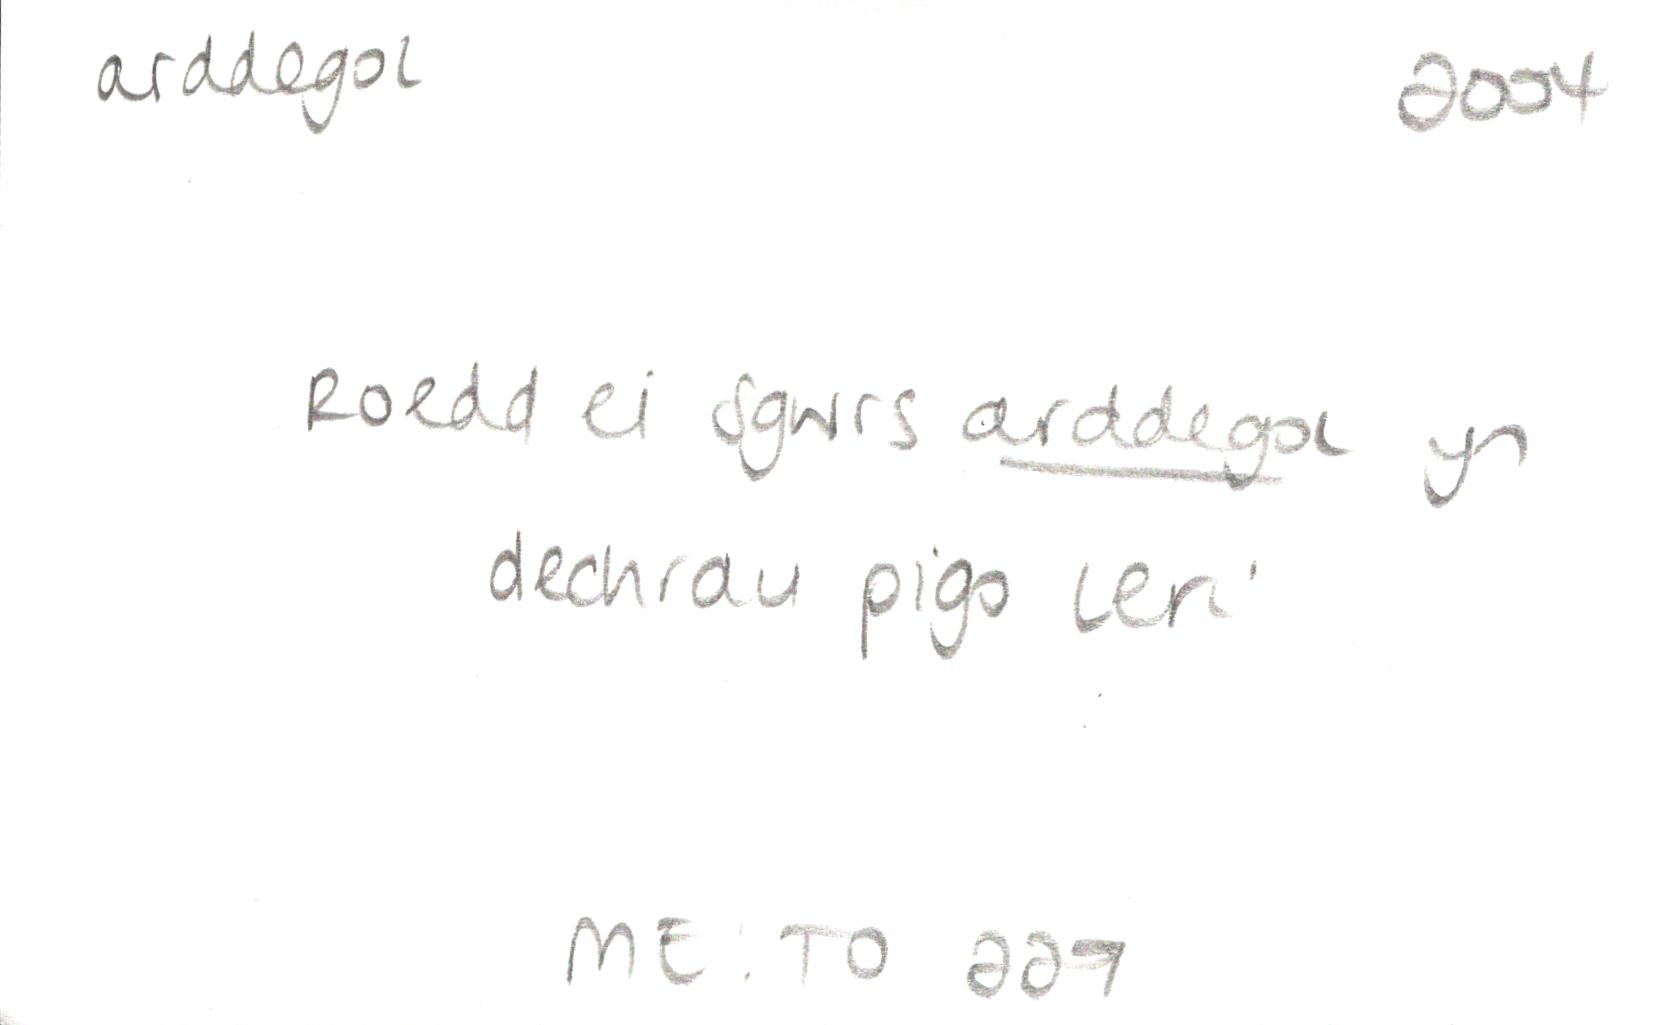 arddegol 2004
Roedd ei sgwrs arddegol yn
dechrau pigo Leri
ME:TO 227